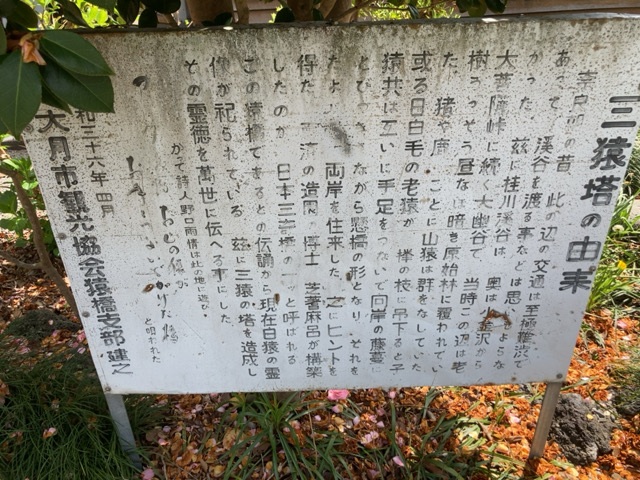 三猿塔の由来
昔 此の辺の交通は至極難渋で
あって 渓谷を渡る事などは思いもよらな
かった 玆に桂川渓谷は 奥は小金沢から
大菩薩峠に続く大幽谷で 当時この辺は老
樹うっそう昼なほ暗き原始林に覆われてい
た 猪や鹿 ことに山猿は群をなしていた
或る日白毛の老猿が 欅の枝に吊下ると子
猿共は互いに手足をつないで向岸の藤蔓に
とび ながら懸橋の形となり それを
両岸を往来した 之にヒントを
得た 百済の造園 博士 芝耆麻呂が構築
したのが 日本三奇橋の一 と呼ばれる
この猿橋できるとの伝説から 現在白猿の霊
像が祀られている 玆に三猿の塔を造成し
その霊徳を萬世に伝へる事にした
かて詩人野口雨情は此の地に遊び
と唄われた
和三十六年四月
大月市観光協会猿橋支部建之